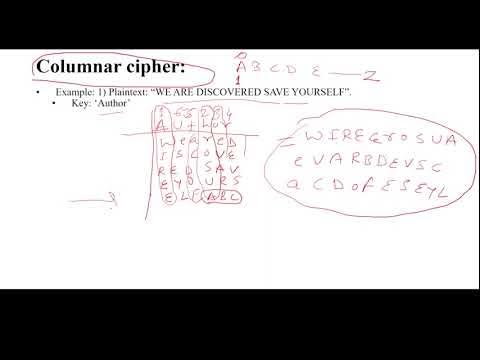 Columnar cipher:
0
A B C D E — Z
1
• Example: 1) Plaintext: “WE ARE DISCOVERED SAVE YOURSELF”.
• Key: ‘Author’
1 6 5 2 3 4
A U t h o r
W e a r e D
I S C O V E
R E D S A V
E Y O U R S
E L F A B C
W I R E E r O S U A
e V A R B D E V S C
a C D O F E S E Y L